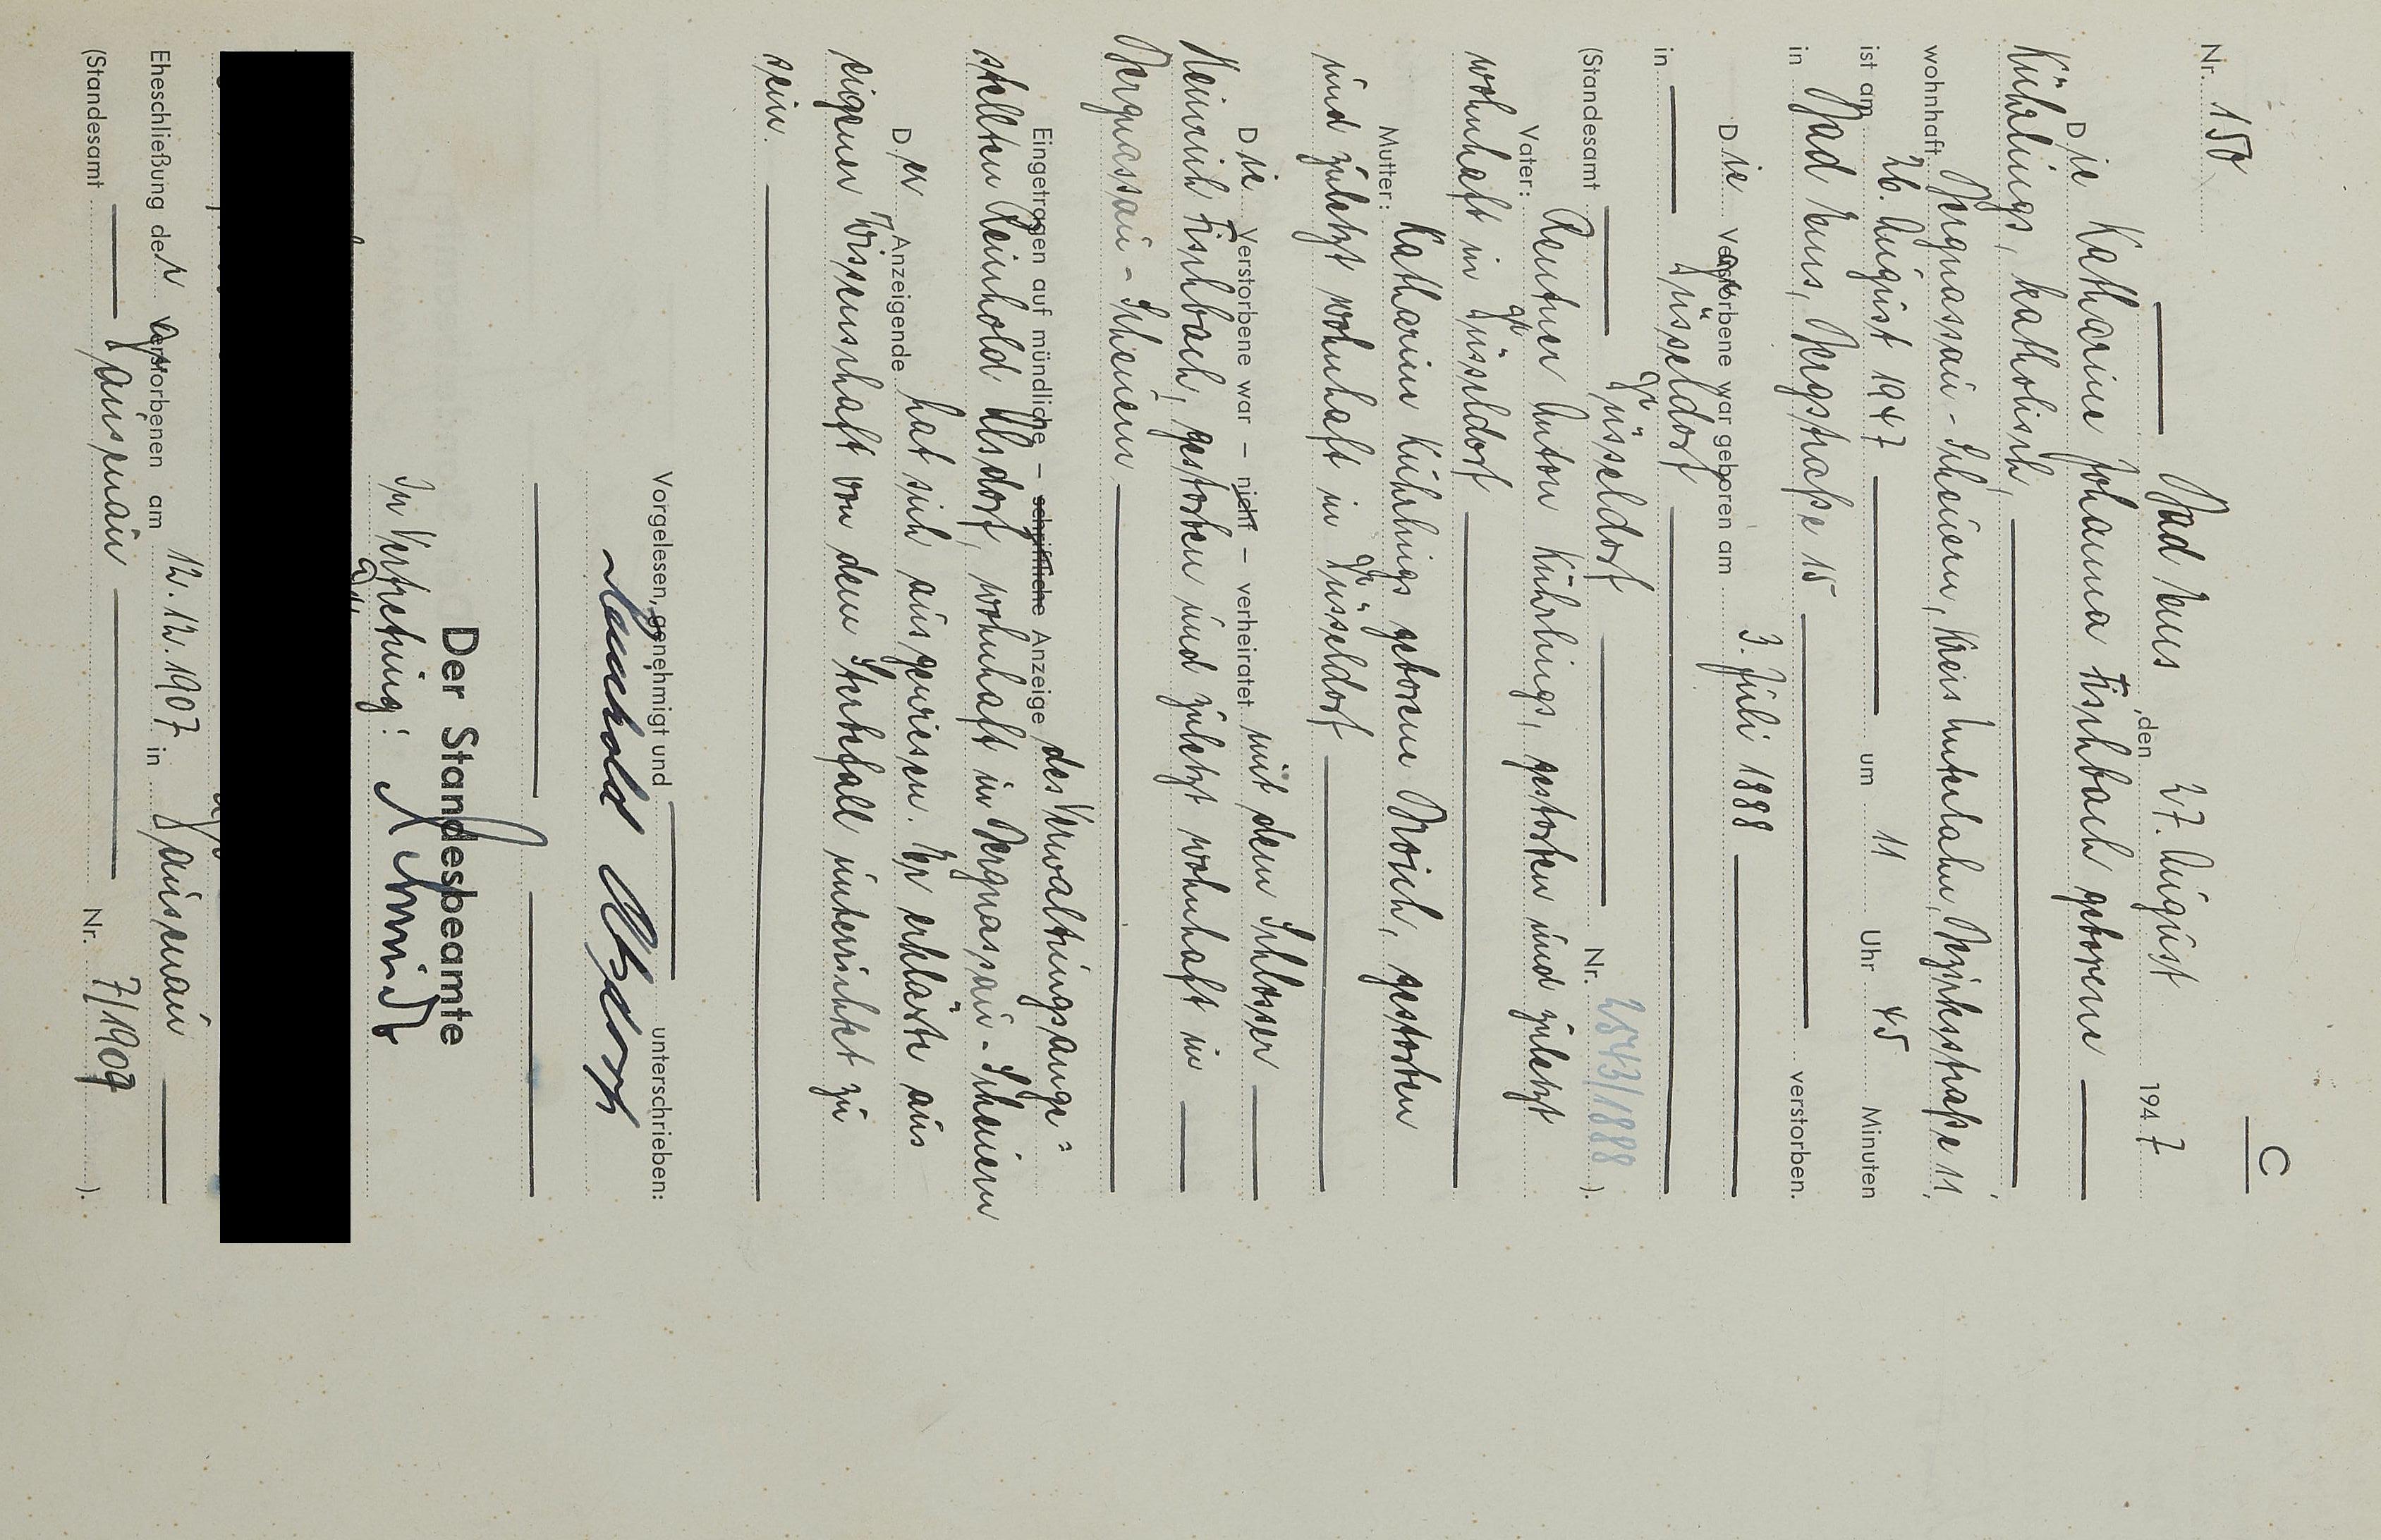 C
Nr. 150
Bad Ems, den 27. August 1947
Die Katharine Johanna Fischbach geborene
Kührlings, katholisch,
wohnhaft Bergnassau-Scheuern, Kreis Unterlahn, Bezirksstraße 11,
ist am 26. August 1947 um 11 Uhr 45 Minuten
in Bad Ems, Bergstraße 15 verstorben.
Die Verstorbene war geboren am 3. Juli 1888
in Düsseldorf
(Standesamt Düsseldorf Nr. 2543/1888 ).
Vater: Rentner Anton Kührlings, gestorben und zuletzt
wohnhaft in Düsseldorf
Mutter: Katharina Kührlings geborene Broich, gestorben
und zuletzt wohnhaft in Düsseldorf
Die Verstorbene war – nicht – verheiratet mit dem Schlosser
Heinrich Fischbach, gestorben und zuletzt wohnhaft in
Bergnassau-Scheuern
Eingetragen auf mündliche – schriftliche Anzeige des Verwaltungsange=
stellten Reinhold Ulsdorf, wohnhaft in Bergnassau-Scheuern
Der Anzeigende hat sich ausgewiesen. Er erklärte aus
eigener Wissenschaft von dem Sterbefall unterrichtet zu
sein.
Vorgelesen, genehmigt und unterschrieben:
Reinhold Ulsdorf
Der Standesbeamte
In Vertretung: Schmidt
Eheschließung der Verstorbenen am 12.12.1907 in Dausenau
(Standesamt Dausenau Nr. 7/1907 ).